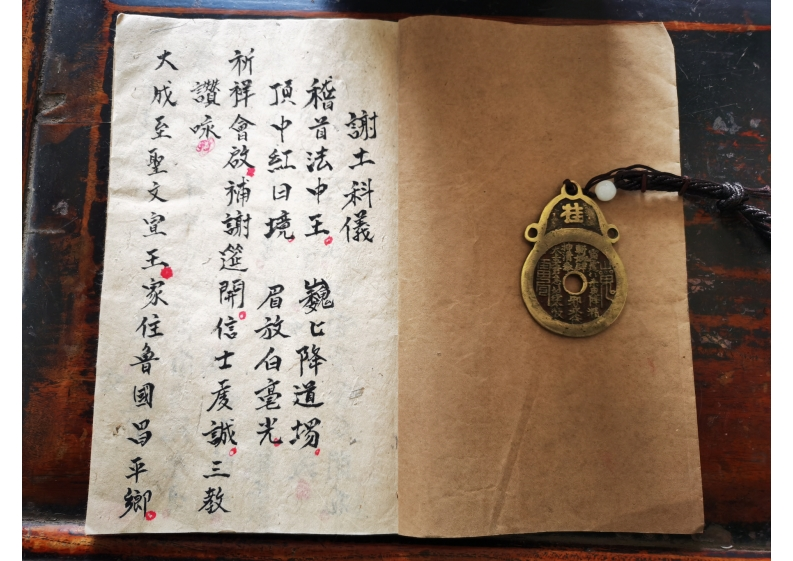 謝土科儀
稽首法中王 巍巍降道場
頂中紅日境 眉放白毫光
祈祥會啟補謝筵開信士虔誠三教
讚咏
大成至聖文宣王家住魯國昌平鄉
桂